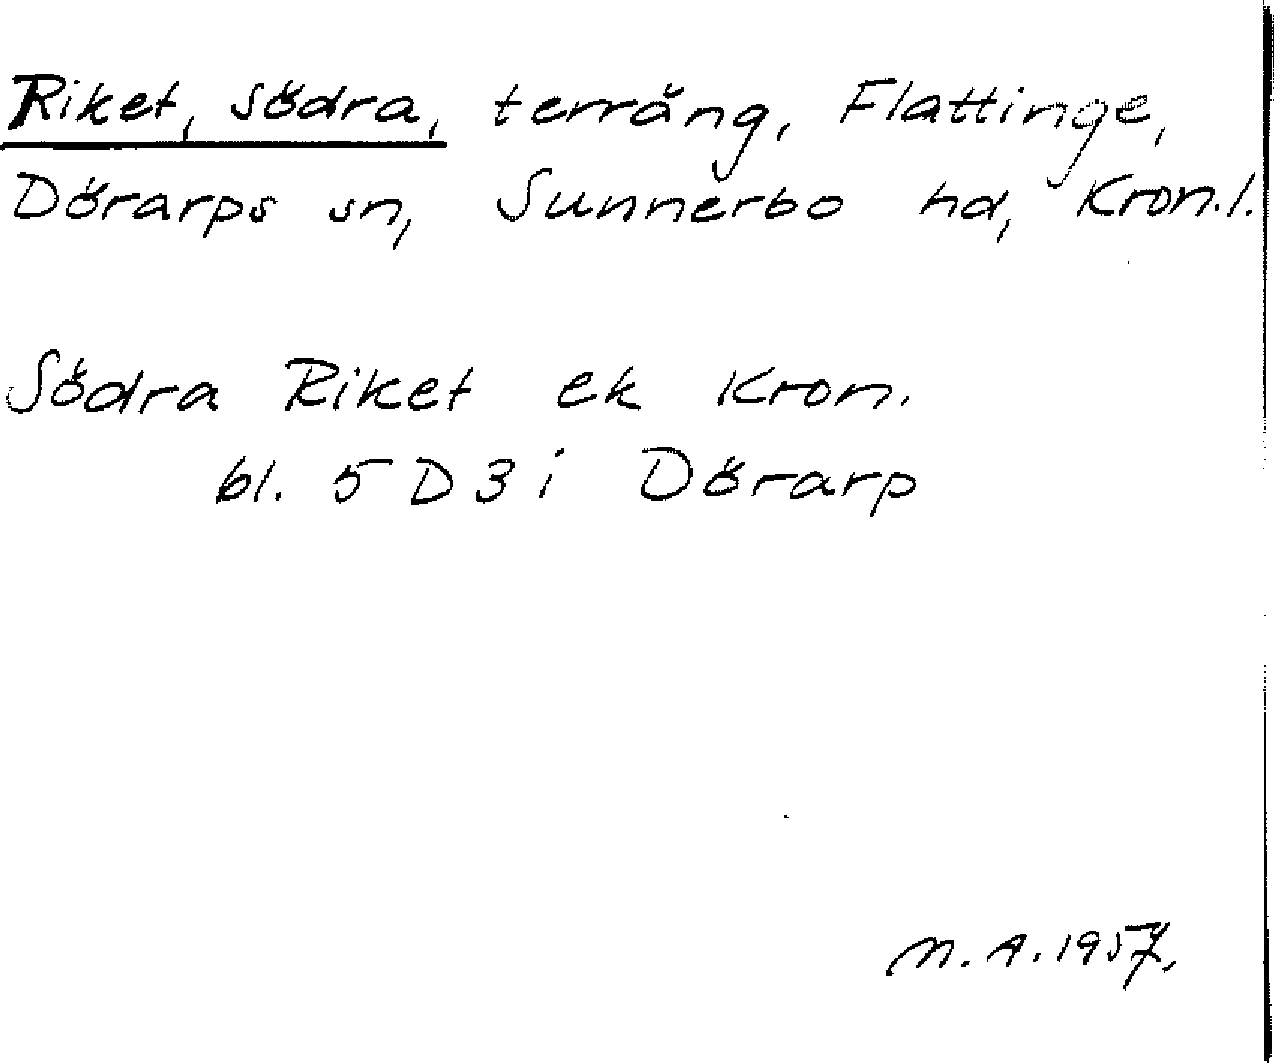 Riket, södra, terräng, Flattinge,
Dörarps sn, Sunnerbo hd, Kron.l.
Södra Riket ek Kron.
bl. 5 D 3 i Dörarp
M. A. 1957.